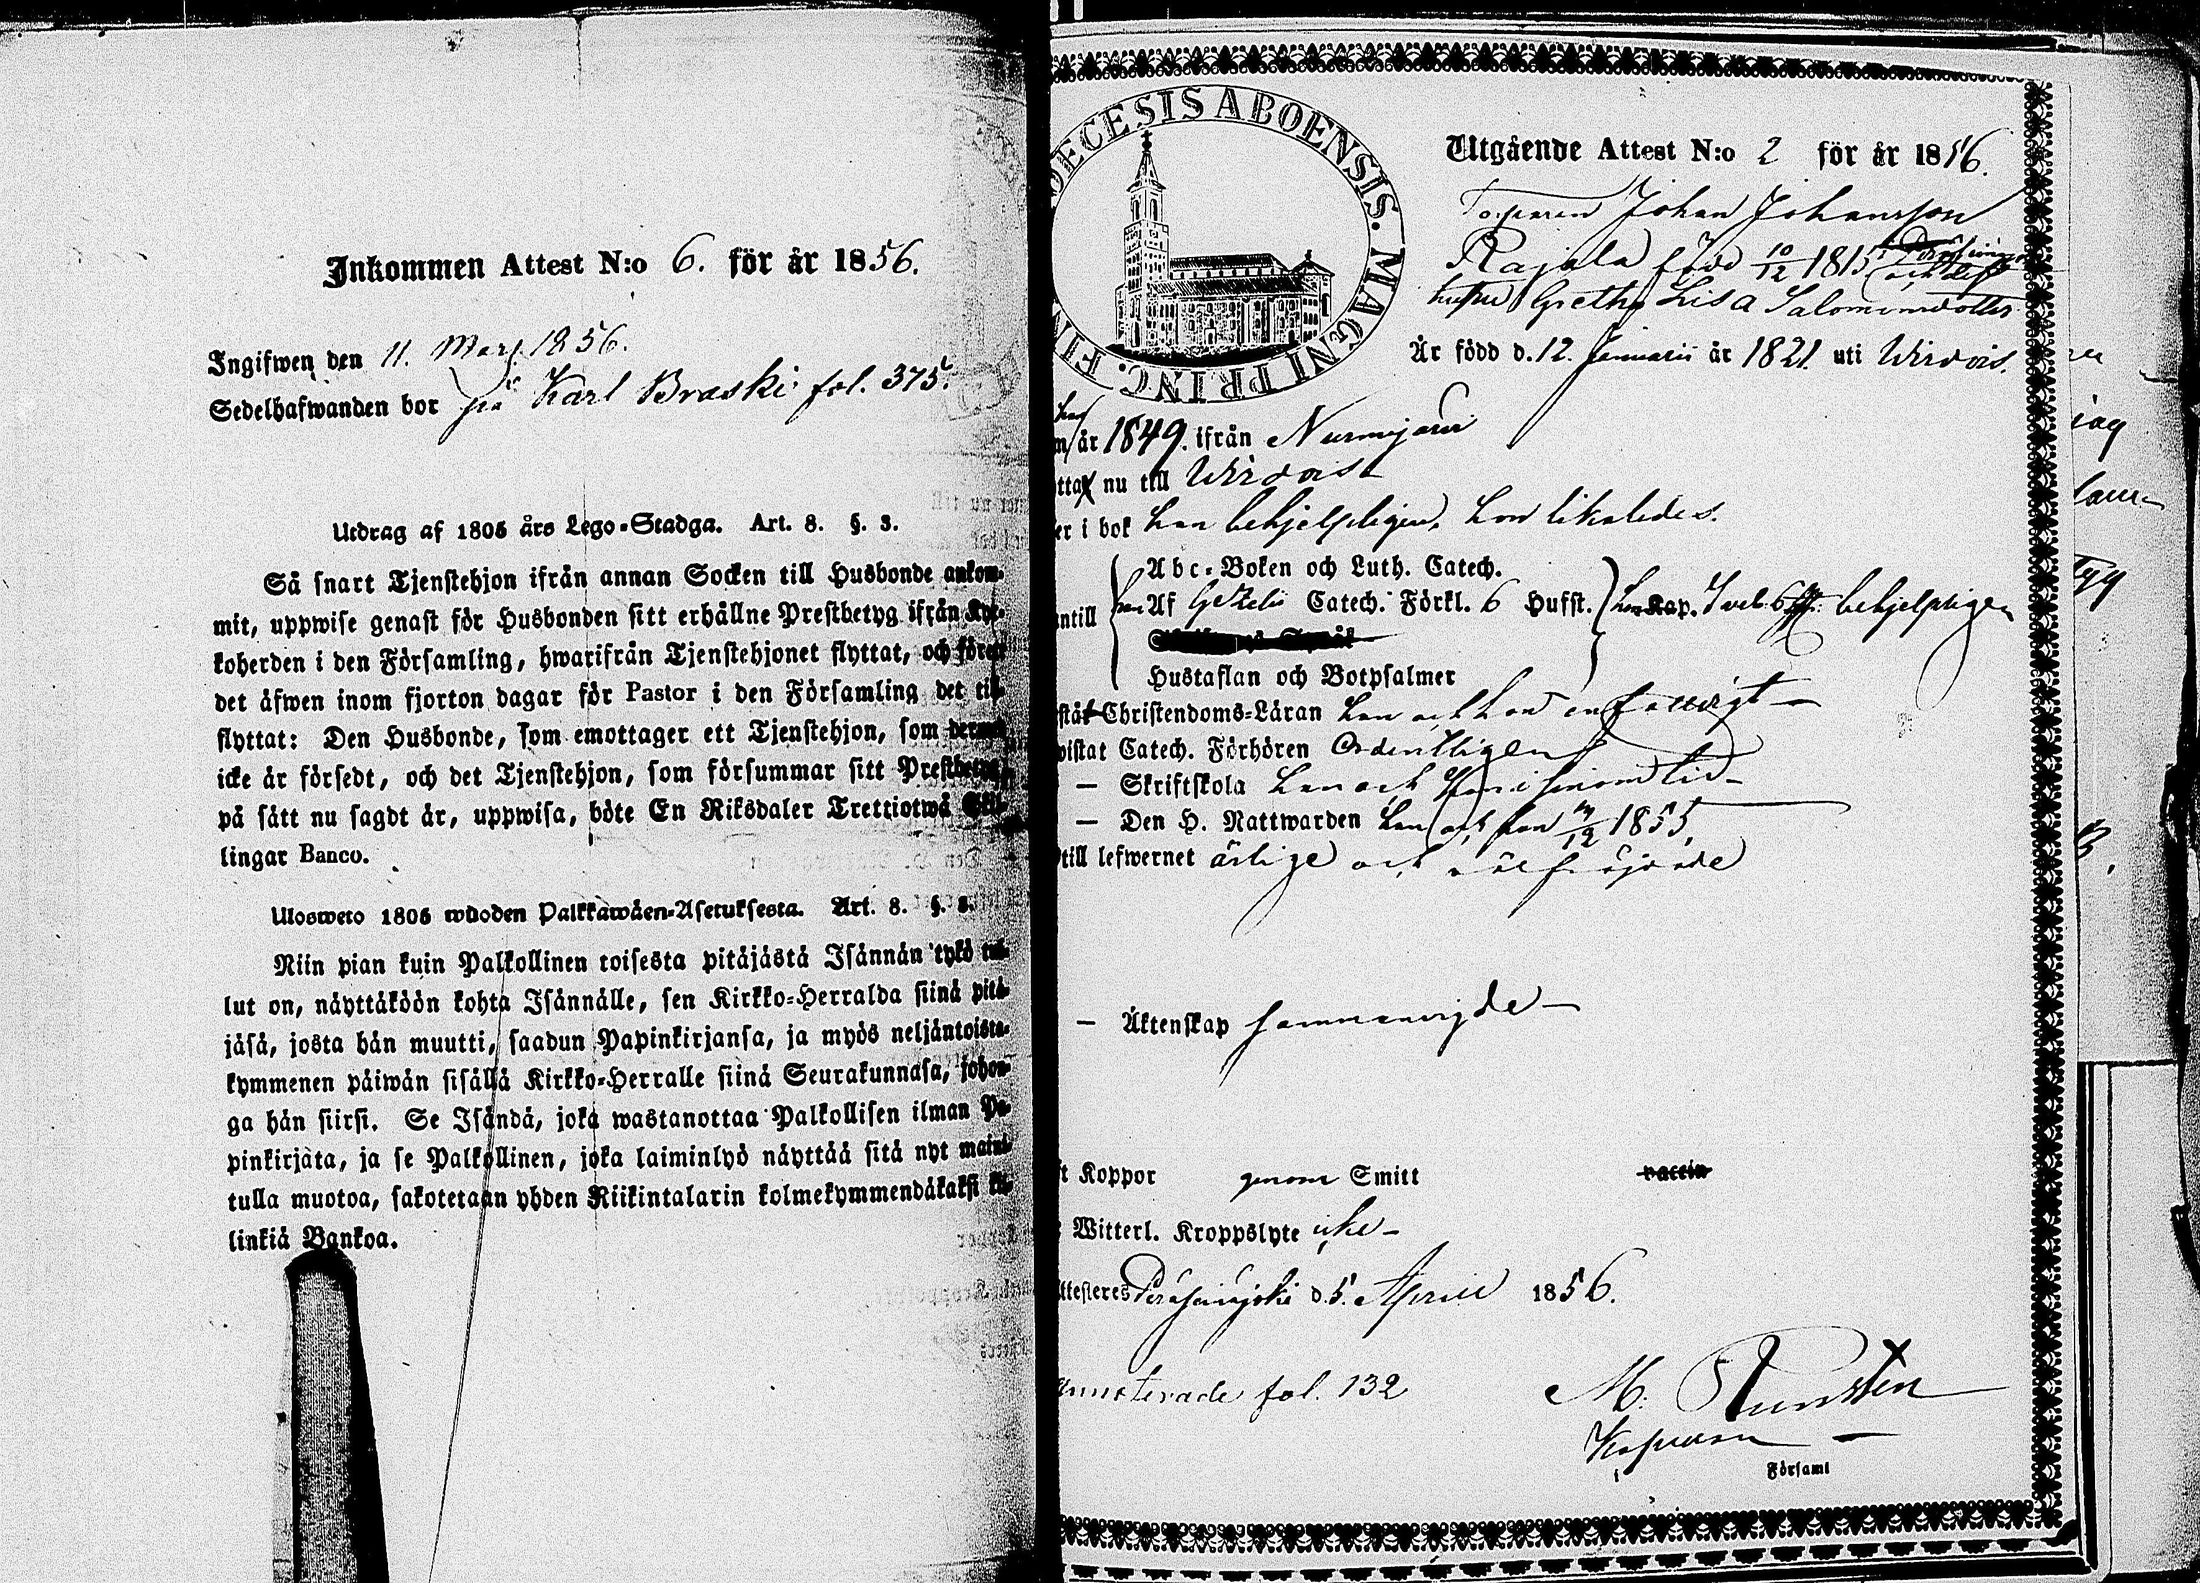 Inkommen Attest N:o 6. för år 1856.
Ingifwen den 11. Mars 1856.
Sedelhafwanden bor på Karl Braski fol. 375.
Utdrag af 1805 års Lego-Stadga. Art. 8. §. 3.
Så snart Tjenstehjon ifrån annan Socken till Husbonde ankom-
mit, uppwise genast för Husbonden sitt erhållne Prestbetyg ifrån Kyr-
koherden i den Församling, hwarifrån Tjenstehjonet flyttat, och förete
det äfwen inom fjorton dagar för Pastor i den Församling det till-
flyttat: Den Husbonde, som emottager ett Tjenstehjon, som dermed
icke är försedt, och det Tjenstehjon, som försummar sitt Prestbetyg,
på sätt nu sagdt är, uppwisa, böte En Riksdaler Trettiotwå Skil-
lingar Banco.
Ulosweto 1805 wuoden Palkkawäen-Asetuksesta. Art. 8. §. 3.
Niin pian kuin Palkollinen toisesta pitäjästä Isännän tykö tul-
lut on, näyttäköön kohta Isännälle, sen Kirkko-Herralda siinä pitä-
jäsä, josta hän muutti, saadun Papinkirjansa, ja myös neljäntoista-
kymmenen päiwän sisällä Kirkko-Herralle siinä Seurakunnasa, johon-
ga hän siirsi. Se Isändä, joka wastanottaa Palkollisen ilman Pa-
pinkirjata, ja se Palkollinen, joka laiminlyö näyttää sitä nyt maini-
tulla muotoa, sakotetaan yhden Riikintalarin kolmekymmendäkaksi kil-
linkiä Bankoa.
DECESIS ABOENSIS. MAGNI PRINC. FIN
Utgående Attest N:o 2 för år 1856.
Torparen Johan Johansson
Rajala född 10/12 1815
hustru Greta Lisa Salomonsdotter
Är född d. 12. Januarii år 1821. uti Wirdois.
år 1849. ifrån Nurmijärvi
nu till Wirdois
er i bok han behjelpligen, hon likaledes.
Abc-Boken och Luth. Catech.
ntill Af Gezelii Catech. Förkl. 6 Hufst. Kap. behjelpligen
Hustaflan och Botpsalmer
Christendoms-Läran han och hon enfaldigt
wistat Catech. Förhören Ordentligen
— Skriftskola han och hon i sinom tid
— Den H. Nattwarden han och hon 1855
till lefwernet ärlige och wälfrejdade
— Äktenskap sammanvigde —
t Koppor genom Smitt vaccin
Witterl. Kroppslyte icke —
Attesteres Peräseinäjoki d. 5. April 1856.
annoterade fol. 132
M. Runsten
Kapellan
Församl